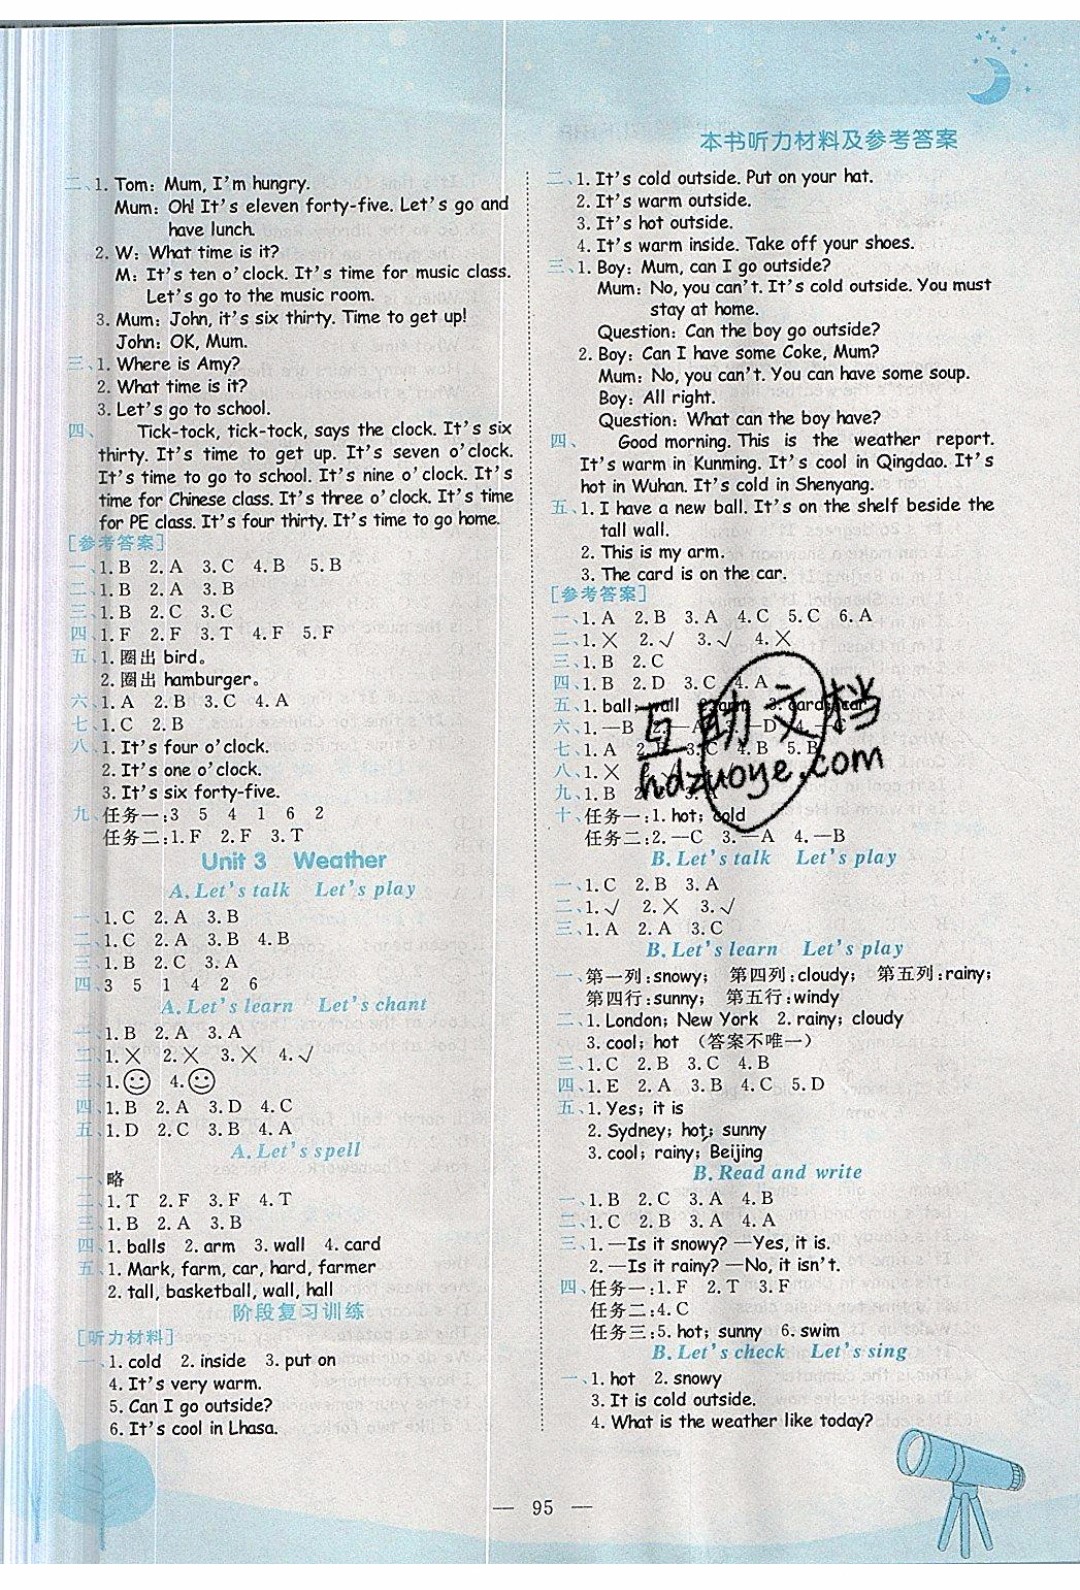 本书听力材料及参考答案
二、1. Tom: Mum, I'm hungry.
Mum: Oh! It's eleven forty-five. Let's go and
have lunch.
2. W: What time is it?
M: It's ten o'clock. It's time for music class.
Let's go to the music room.
3. Mum: John, it's six thirty. Time to get up!
John: OK, Mum.
三、1. Where is Amy?
2. What time is it?
3. Let's go to school.
四、 Tick-tock, tick-tock, says the clock. It's six
thirty. It's time to get up. It's seven o'clock.
It's time to go to school. It's nine o'clock. It's
time for Chinese class. It's three o'clock. It's time
for PE class. It's four thirty. It's time to go home.
[参考答案]
一、1. B 2. A 3. C 4. B 5. B
二、1. B 2. A 3. B
三、1. B 2. C 3. C
四、1. F 2. F 3. T 4. F 5. F
五、1. 圈出 bird。
2. 圈出 hamburger。
六、1. A 2. B 3. C 4. A
七、1. C 2. B
八、1. It's four o'clock.
2. It's one o'clock.
3. It's six forty-five.
九、任务一:3 5 4 1 6 2
任务二:1. F 2. F 3. T
Unit 3 Weather
A. Let's talk Let's play
一、1. C 2. A 3. B
二、1. C 2. A 3. B 4. B
三、1. B 2. C 3. A
四、3 5 1 4 2 6
A. Let's learn Let's chant
一、1. B 2. A 3. A
二、1. × 2. × 3. × 4. √
三、1. ☺ 4. ☺
四、1. B 2. A 3. D 4. C
五、1. D 2. C 3. B 4. A
A. Let's spell
一、略
二、1. T 2. F 3. F 4. T
三、1. B 2. A 3. B
四、1. balls 2. arm 3. wall 4. card
五、1. Mark, farm, car, hard, farmer
2. tall, basketball, wall, hall
阶段复习训练
[听力材料]
一、1. cold 2. inside 3. put on
4. It's very warm.
5. Can I go outside?
6. It's cool in Lhasa.
二、1. It's cold outside. Put on your hat.
2. It's warm outside.
3. It's hot outside.
4. It's warm inside. Take off your shoes.
三、1. Boy: Mum, can I go outside?
Mum: No, you can't. It's cold outside. You must
stay at home.
Question: Can the boy go outside?
2. Boy: Can I have some Coke, Mum?
Mum: No, you can't. You can have some soup.
Boy: All right.
Question: What can the boy have?
四、 Good morning. This is the weather report.
It's warm in Kunming. It's cool in Qingdao. It's
hot in Wuhan. It's cold in Shenyang.
五、1. I have a new ball. It's on the shelf beside the
tall wall.
2. This is my arm.
3. The card is on the car.
[参考答案]
一、1. A 2. B 3. A 4. C 5. C 6. A
二、1. × 2. √ 3. √ 4. ×
三、1. B 2. C
四、1. B 2. D 3. C 4. A
五、1. ball; wall 2. arm 3. card; car
六、1. —B 2. —A 3. —D 4. —C
七、1. A 2. 3. C 4. B 5. B
八、1. ×
九、1. B 2. 3.
十、任务一:1. hot; cold
任务二:2. —C 3. —A 4. —B
互助文档
hdzuoye.com
B. Let's talk Let's play
一、1. C 2. B 3. A
二、1. √ 2. × 3. √
三、1. A 2. A 3. C
B. Let's learn Let's play
一、第一列:snowy; 第四列:cloudy; 第五列:rainy;
第四行:sunny; 第五行:windy
二、1. London; New York 2. rainy; cloudy
3. cool; hot (答案不唯一)
三、1. C 2. B 3. C 4. B
四、1. E 2. A 3. B 4. C 5. D
五、1. Yes; it is
2. Sydney; hot; sunny
3. cool; rainy; Beijing
B. Read and write
一、1. B 2. C 3. A 4. B
二、1. C 2. B 3. A 4. A
三、1. —Is it snowy? —Yes, it is.
2. —Is it rainy? —No, it isn't.
四、任务一:1. F 2. T 3. F
任务二:4. C
任务三:5. hot; sunny 6. swim
B. Let's check Let's sing
一、1. hot 2. snowy
3. It is cold outside.
4. What is the weather like today?
— 95 —